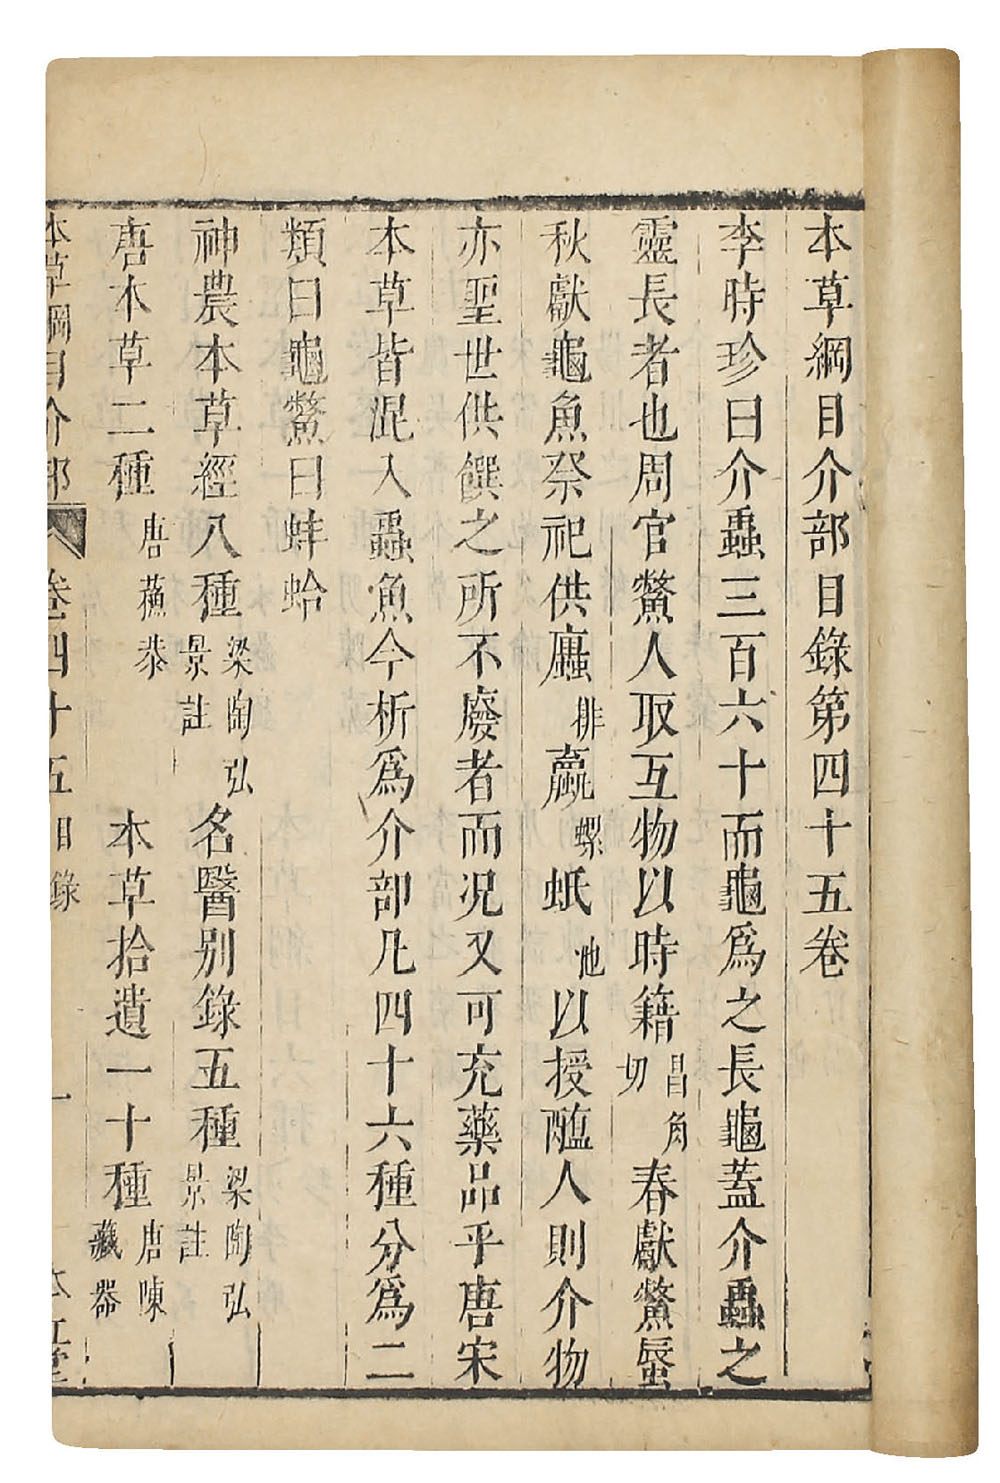 本草綱目介部目錄第四十五卷
李時珍曰介蟲三百六十而龜為之長龜蓋介蟲之
靈長者也周官鱉人取互物以時籍昌角切春獻鱉蜃
秋獻龜魚祭祀供蠯排蠃螺蚳池以授醢人則介物
亦聖世供饌之所不廢者而况又可充藥品乎唐宋
本草皆混入蟲魚今析為介部凡四十六種分為二
類曰龜鱉曰蚌蛤
神農本草經八種梁陶弘景註 名醫别錄五種梁陶弘景註
唐本草二種唐蘓恭 本草拾遺一十種唐陳藏器
本草綱目介部 卷四十五目錄 一